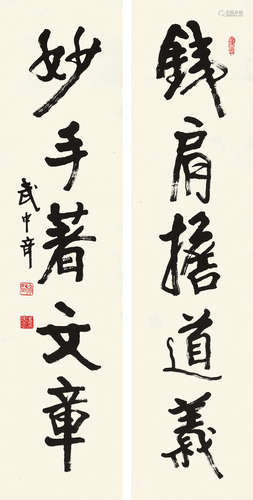 銕肩擔道義
妙手著文章
武中奇